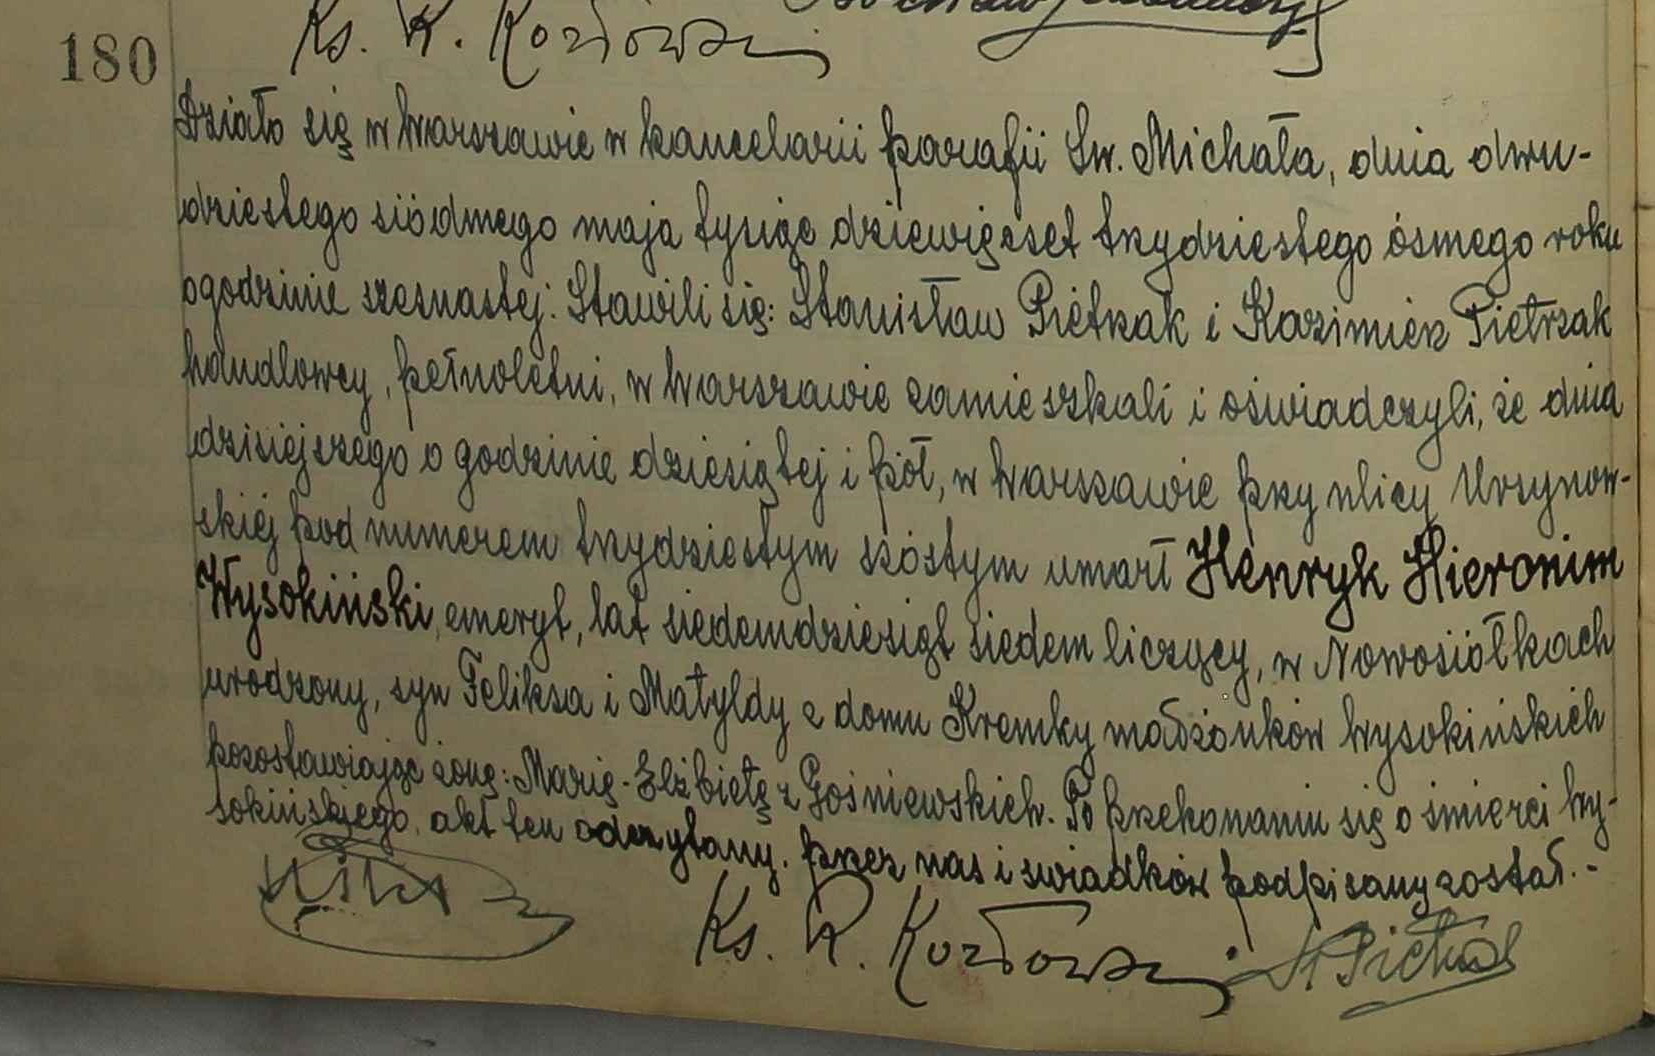 Ks. R. Kozłowski
180
Działo się w Warszawie w kancelarii parafii Św. Michała, dnia dwu-
dziestego siódmego maja tysiąc dziewięcset trzydziestego ósmego roku
o godzinie szesnastej. Stawili się: Stanisław Pietrzak i Kazimierz Pietrzak
handlowcy, pełnoletni, w Warszawie zamieszkali i oświadczyli, że dnia
dzisiejszego o godzinie dziesiątej i pół, w Warszawie przy ulicy Ursynow-
skiej pod numerem trzydziestym szóstym umarł Henryk Hieronim
Wysokiński, emeryt, lat siedemdziesiąt siedem liczący, w Nowosiółkach
urodzony, syn Feliksa i Matyldy z domu Kremky małżonków Wysokińskich
pozostawiając żonę: Marię-Elżbietę z Gośniewskich. Po przekonaniu się o śmierci Wy-
sokińskiego, akt ten odczytany, przez nas i świadków podpisany został.-
Ks. R. Kozłowski
St. Pietrzak